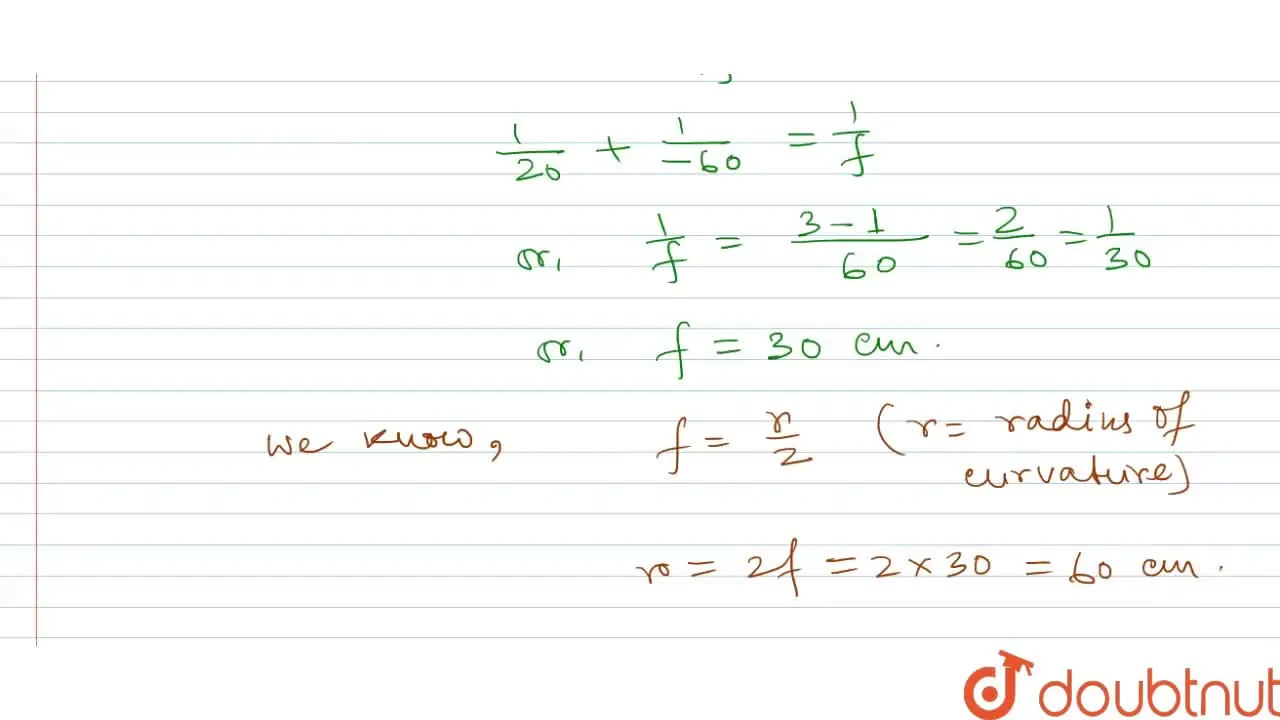 1/20 + 1/-60 = 1/f
or, 1/f = 3-1/60 = 2/60 = 1/30
or, f = 30 cm.
We know, f = r/2 (r = radius of
curvature)
r = 2f = 2 × 30 = 60 cm.
doubtnut